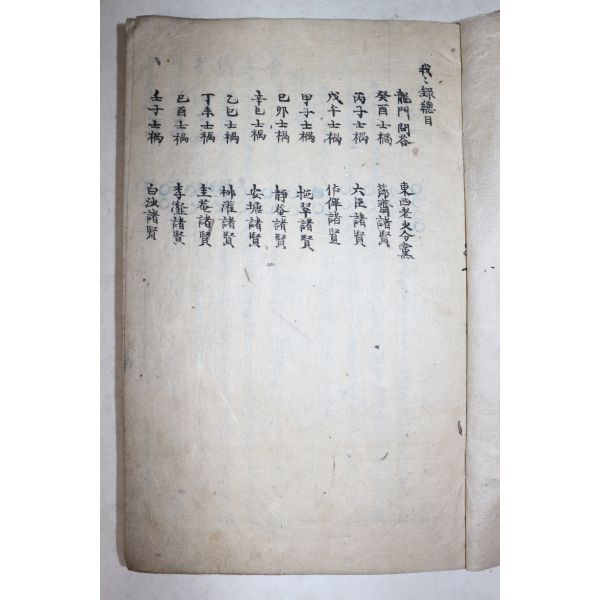 我〻錄總目
龍門問答 東西老少分黨
癸酉士禍 節齋諸賢
丙子士禍 六臣諸賢
戊午士禍 佔畢諸賢
甲子士禍 挹翠諸賢
己卯士禍 靜菴諸賢
辛巳士禍 安瑭諸賢
乙巳士禍 林濯諸賢
丁未士禍 圭菴諸賢
己酉士禍 李瀣諸賢
壬子士禍 白沙諸賢